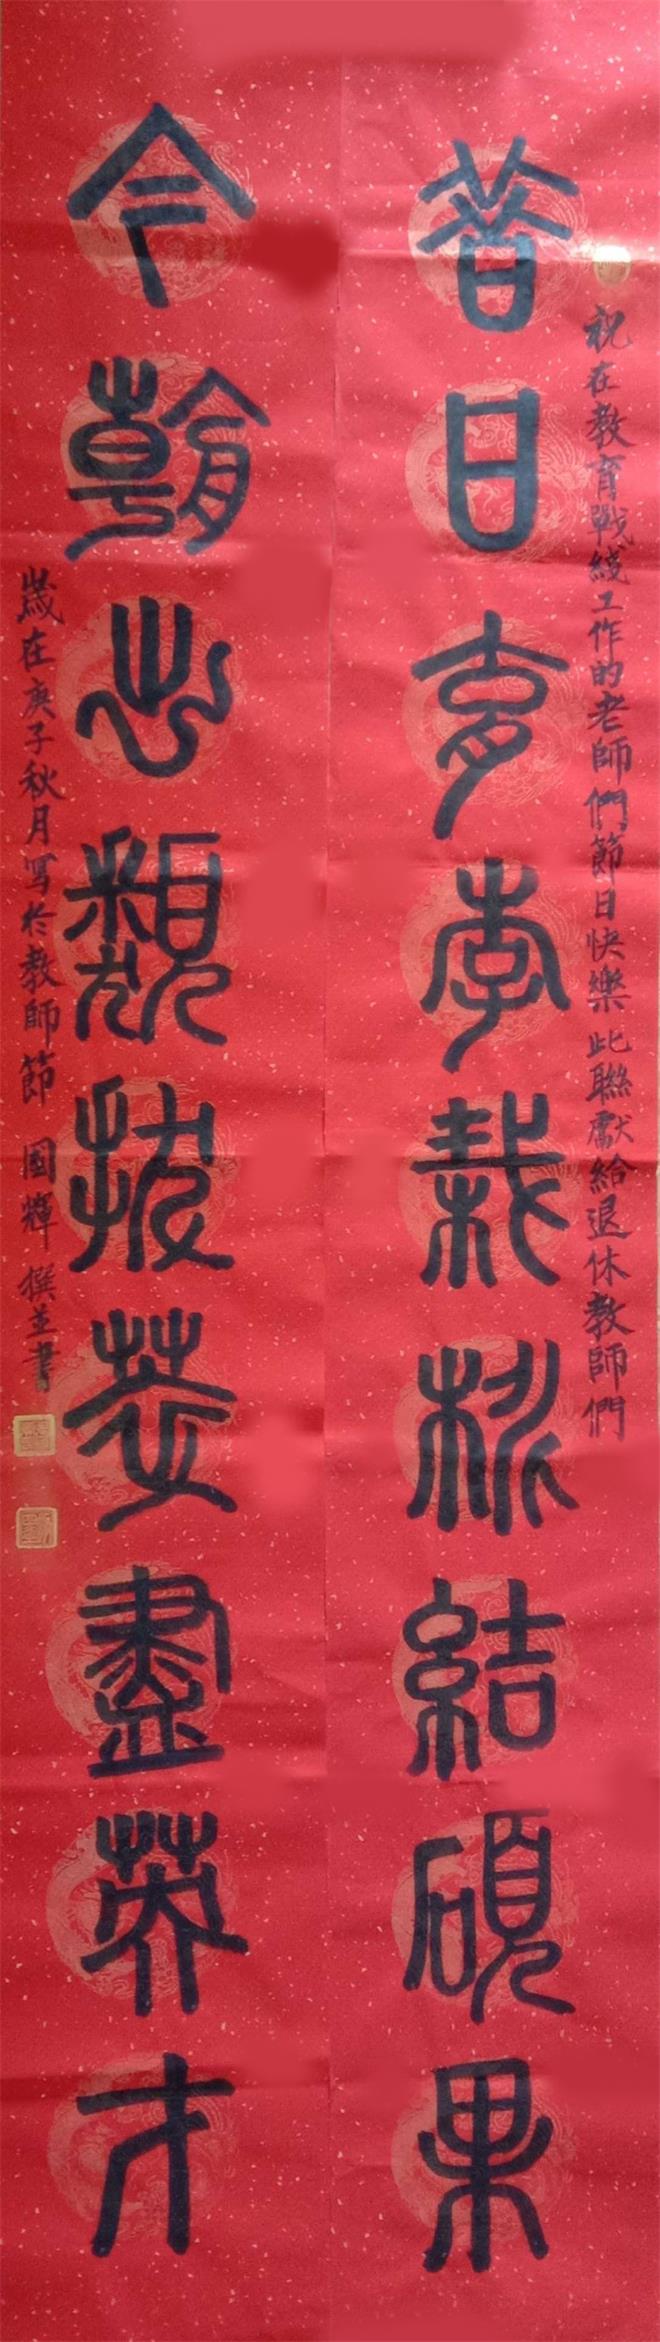 祝在教育戰綫工作的老師們節日快樂 此聯獻給退休教師們
昔日育李栽桃結碩果
今朝出類拔萃盡英才
歲在庚子秋月写於教師節 國輝撰並書